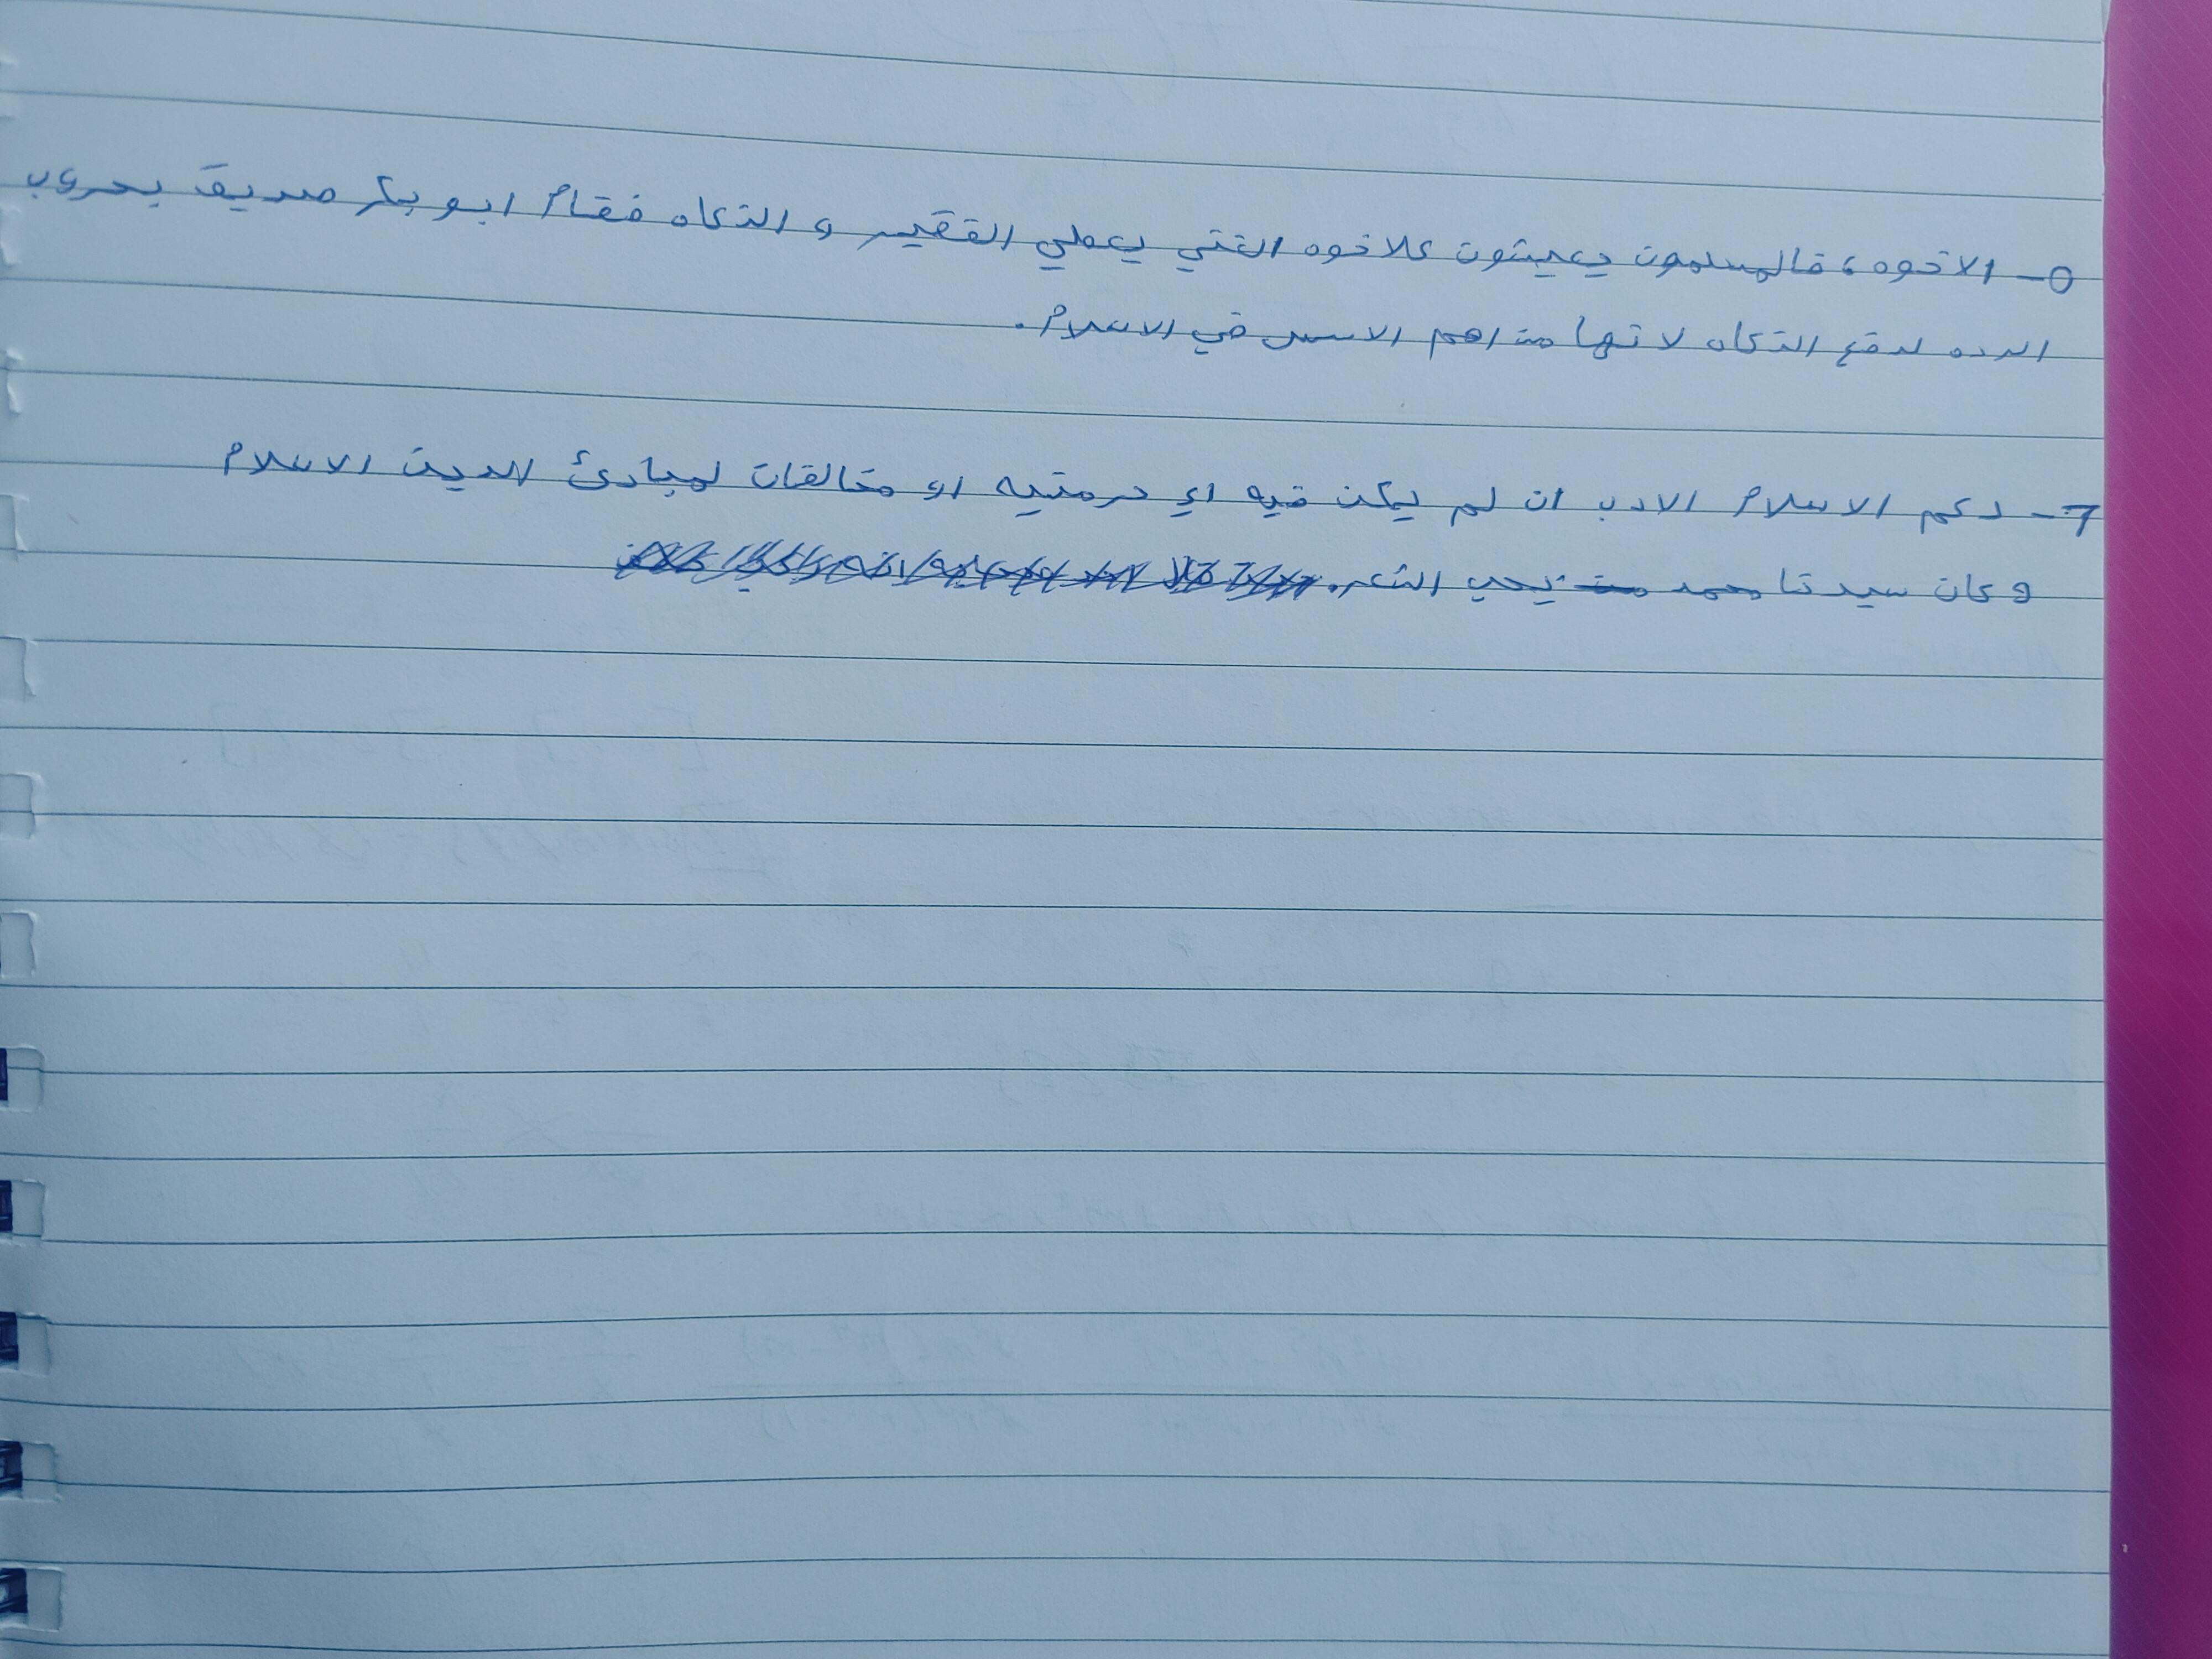 ٥- الاخوه، فالمسلمون يعيشون كلاخوه الغني يعطي الفقير و الزكاه فقام ابو بكر صديق بحروب
الرده لدفع الزكاه لانها من اهم الاسس في الاسلام.
٦- دعم الاسلام الادب ان لم يكن فيه اي حرمتيه او مخالفات لمبادئ الدين الاسلام
و كان سيدنا محمد يحب الشعر.